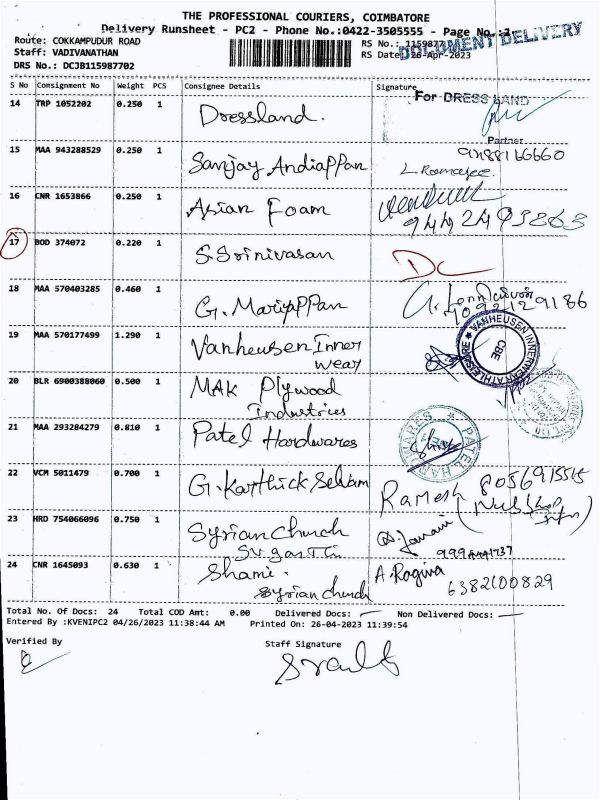 THE PROFESSIONAL COURIERS, COIMBATORE
Delivery Runsheet - PC2 - Phone No.:0422-3505555 - Page No.:1
DOCUMENT DELIVERY
Route: COKKAMPUDUR ROAD
RS No.: 11598770
Staff: VADIVANATHAN
RS Date: 26-Apr-2023
DRS No.: DCJB115987702
S No Consignment No Weight PCS Consignee Details Signature
For DRESS LAND
14 TRP 1052202 0.250 1 Dressland.
Partner
15 MAA 943288529 0.250 1 Sanjay Andiappan
16 CNR 1653866 0.250 1 Asian Foam
17 BOD 374072 0.220 1 S. Srinivasan DC
18 MAA 570403285 0.460 1 G. Mariyappan
19 MAA 570177499 1.290 1 Vanheusen Inner
wear
VANHEUSEN INNERWEAR
CBE
20 BLR 6900388060 0.500 1 MAK Plywood
Industries
21 MAA 293284279 0.810 1 Patel Hardwares
PATEL HARDWARES
22 VCM 5011479 0.700 1 G. Karthick Selvam Ramesh 8056915515
23 HRD 754066096 0.750 1 Syrian Church
24 CNR 1645093 0.630 1 Shami. A. Ragina 6382100829
Syrian church
Total No. Of Docs: 24 Total COD Amt: 0.00 Delivered Docs: Non Delivered Docs:
Entered By :KVENIPC2 04/26/2023 11:38:44 AM Printed On: 26-04-2023 11:39:54
Verified By Staff Signature